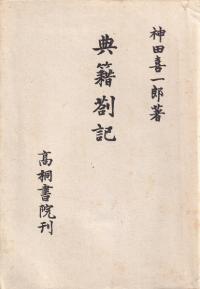 神田喜一郎著
典籍劄記
高桐書院刊